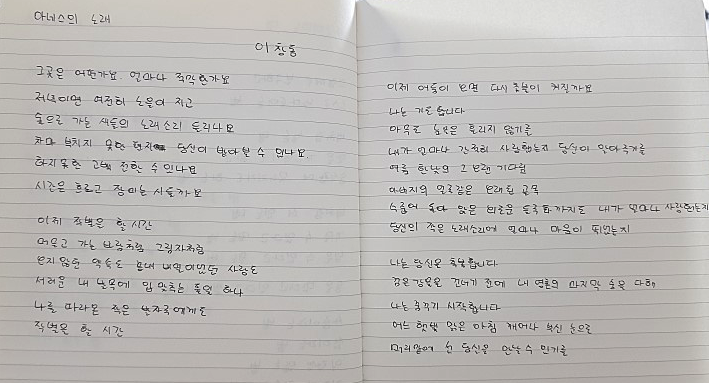 아네스의 노래
이창동
그곳은 어떤가요 얼마나 적막한가요
저녁이면 여전히 노을이 지고
숲으로 가는 새들의 노래소리 들리나요
차마 부치지 못한 편지 당신이 받아볼 수 있나요
하지못한 고백 전할 수 있나요
시간은 흐르고 장미는 시들까요
이제 작별을 할 시간
머물고 가는 바람처럼 그림자처럼
오지않던 약속도 끝내 비밀이었던 사랑도
서러운 내 발목에 입 맞추는 풀잎 하나
나를 따라온 작은 발자국에게도
작별을 할 시간
이제 어둠이 오면 다시 촛불이 켜질까요
나는 기도합니다
아무도 눈물은 흘리지 않기를
내가 얼마나 간절히 사랑했는지 당신이 알아주기를
여름 한낮의 그 오랜 기다림
아버지의 얼굴같은 오래된 골목
수줍어 돌아 앉은 외로운 들국화까지도 내가 얼마나 사랑했는지
당신의 작은 노래소리에 얼마나 가슴이 뛰었는지
나는 당신을 축복합니다
검은 강물을 건너기 전에 내 영혼의 마지막 숨을 다해
나는 꿈꾸기 시작합니다
어느 햇빛 맑은 아침 깨어나 부신 눈으로
머리맡에 선 당신을 만날 수 있기를